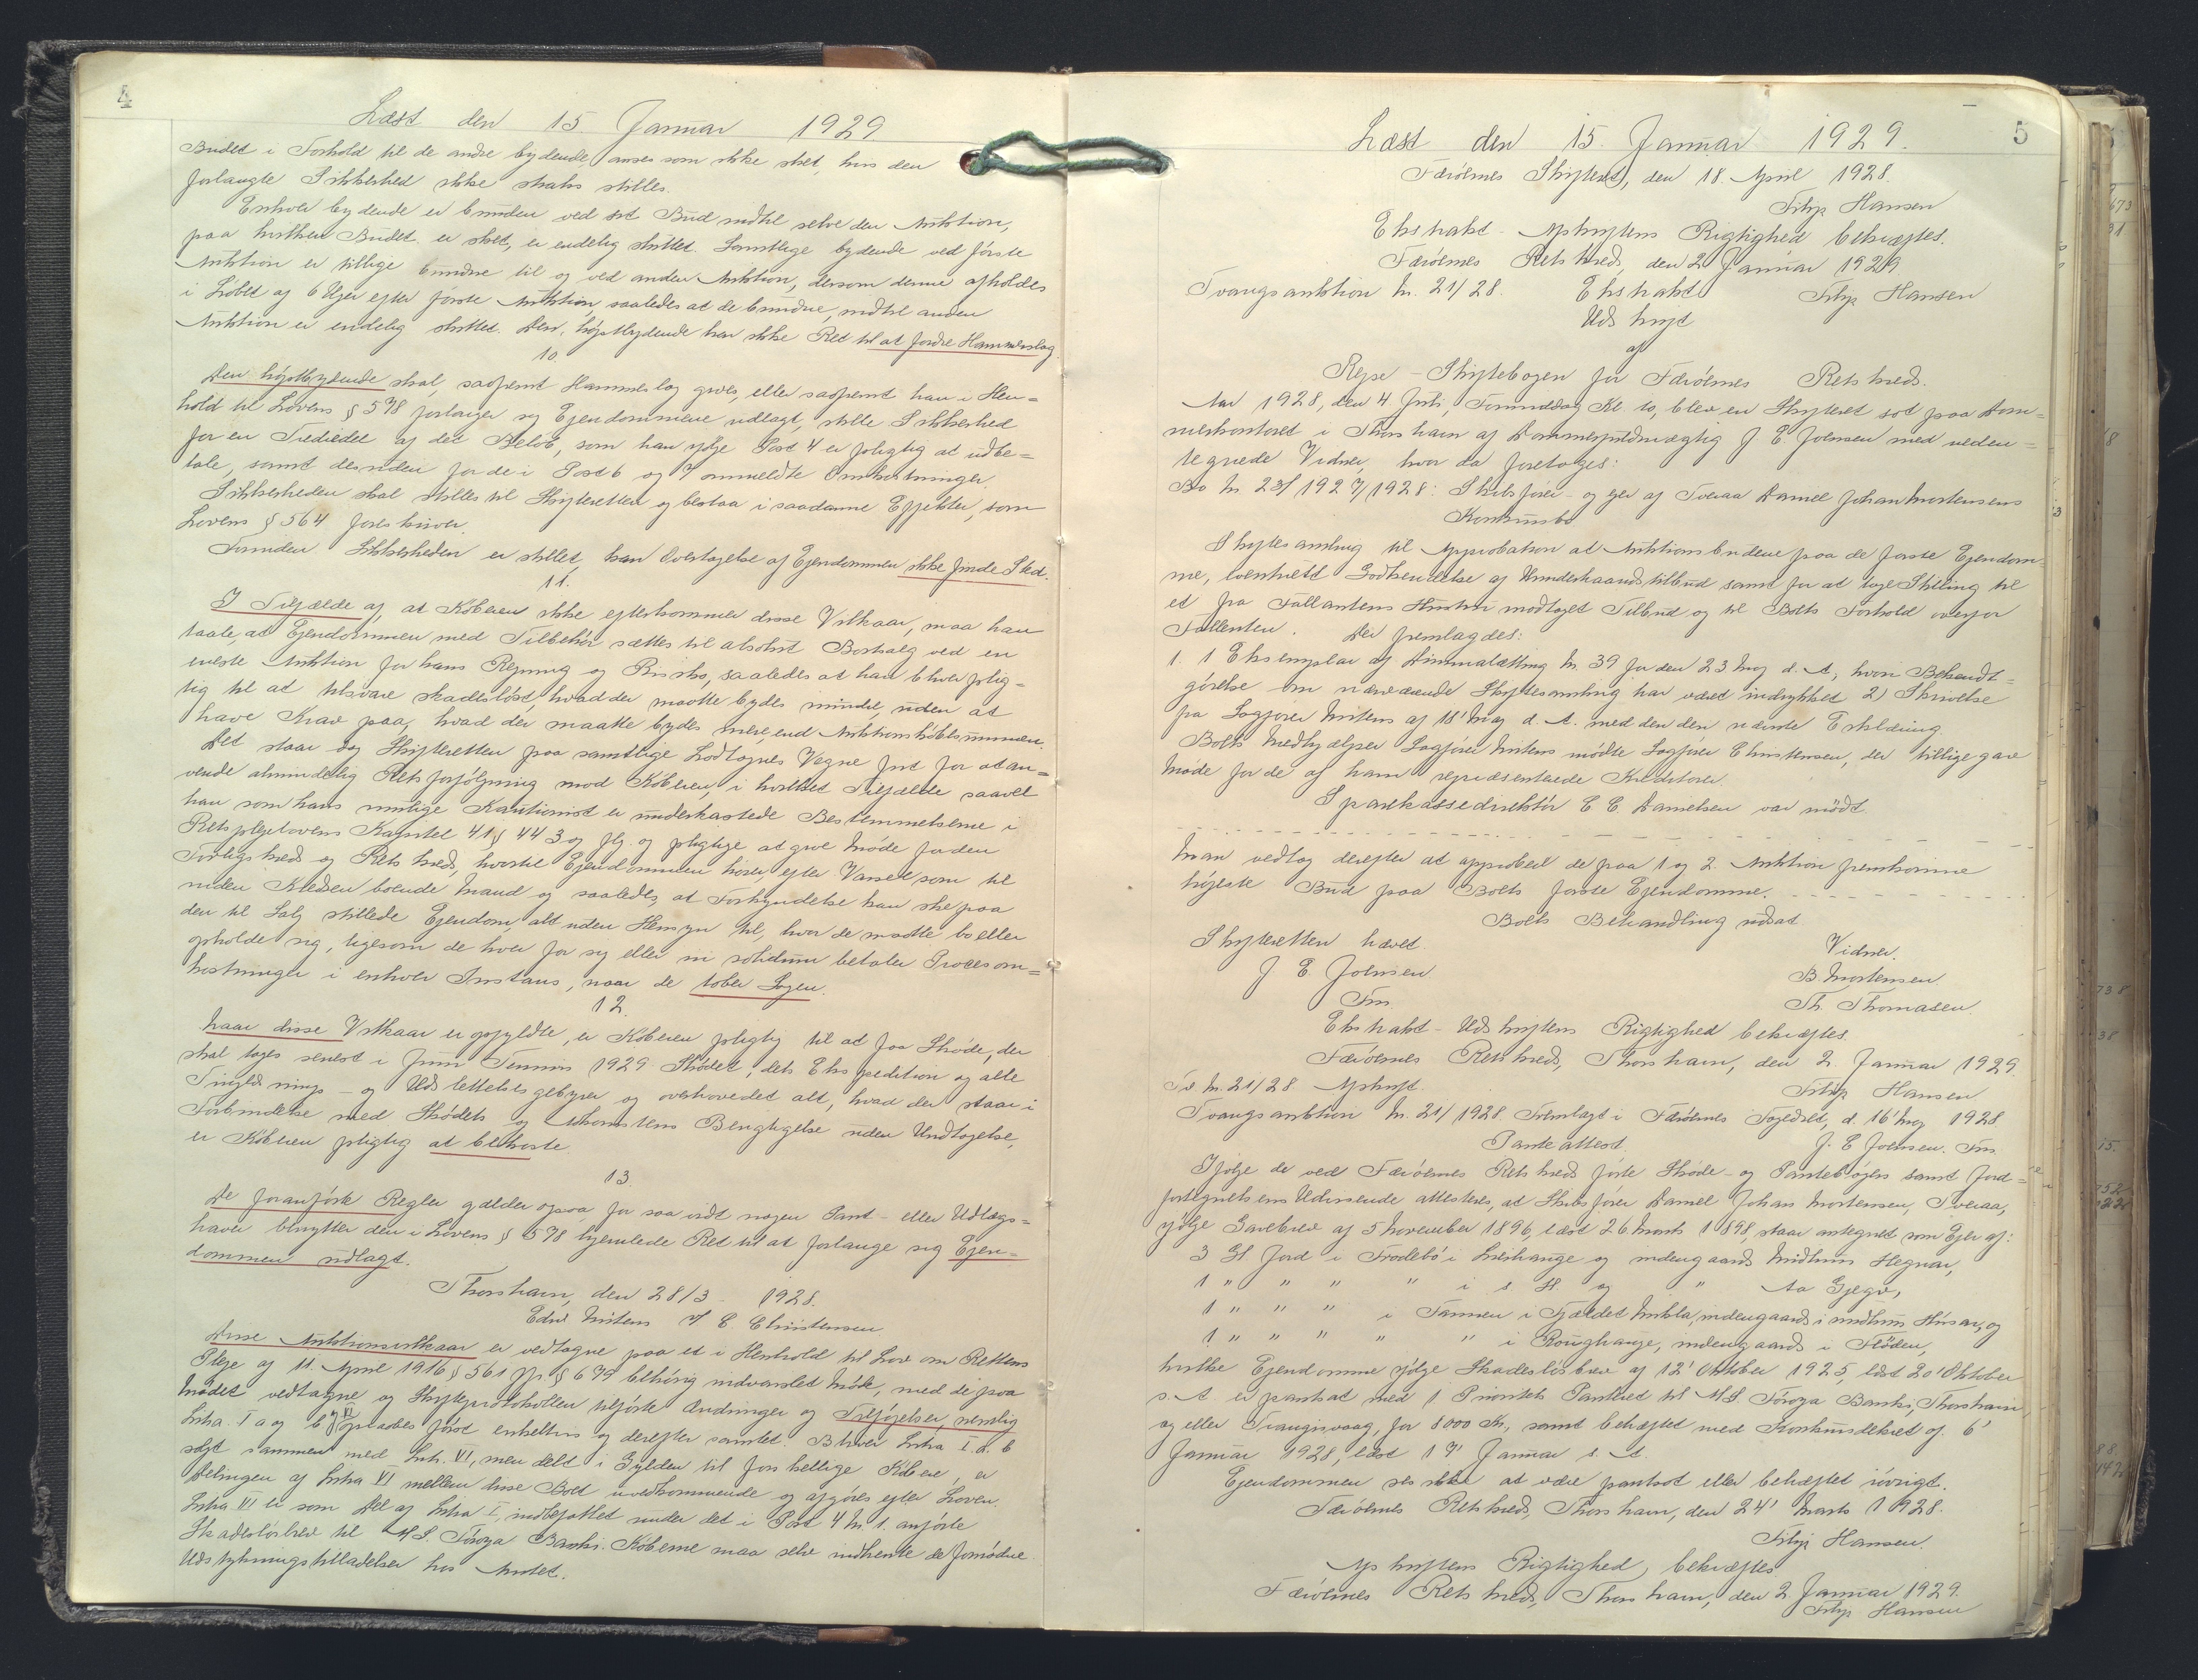 4
Læst den 15 Januar 1929
Budet i Forhold til de andre bydende anses som ikke sket, hvis den
forlangte Sikkerhed ikke straks stilles.
Enhver bydende er bunden ved sit Bud indtil selve den Auktion,
paa hvilken Budet er sket, er endelig sluttet. Samtlige bydende ved første
Auktion er tillige bundne til og ved anden Auktion, dersom denne afholdes
i Løbet af 6 Uger efter første Auktion, saaledes at de bundne, indtil anden
Auktion er endelig sluttet. Den højstbydende har ikke Ret til at fordre Hammerslag.
10.
Den højstbydende skal, saafremt Hammerslag gives, eller saafremt han i Hen=
hold til Lovens § 578 forlanger sig Ejendommene udlagt, stille Sikkerhed
for en Trediedel af det Beløb, som han ifølge Post 4 er pligtig at udbe=
tale, samt desuden for de i Post 6 og 7 ommeldte Omkostninger.
Sikkerheden skal stilles til Skifteretten og bestaa i saadanne Effekter, som
Lovens § 564 foreskriver.
Forinden Sikkerheden er stillet, kan Overtagelse af Ejendommen ikke finde Sted.
11.
I Tilfælde af, at Køberen ikke efterkommer disse Vilkaar, maa han
taale, at Ejendommen med Tilbehør sættes til absolut Bortsalg ved en
eneste Auktion for hans Regning og Risiko, saaledes at han bliver plig=
tig til at tilsvare skadesløst, hvad der maatte bydes mindre, uden at
have Krav paa, hvad der maatte bydes mere, end Auktionskøbesummen.
Det staar dog Skifteretten paa samtlige Lodtagnes Vegne frit for at an=
vende almindelig Retsforfølgning mod Køberen, i hvilket Tilfælde saavel
han som hans mulige Kautionist er underkastede Bestemmelserne i
Retsplejelovens Kapitel 41, § 443 og flg. og pligtige at give Møde for den
Forligskreds og Retskreds, hvortil Ejendommen hører, efter Varsel som til
inden Kredsen boende Mand og saaledes, at Forkyndelse kan ske paa
den til Salg stillede Ejendom, alt uden Hensyn til, hvor de maatte bo eller
opholde sig, ligesom de hver for sig eller in solidum betaler Procesom=
kostninger i enhver Instans, naar de taber Sagen.
12.
Naar disse Vilkaar er opfyldte, er Køberen pligtig til at faa Skøde, der
skal tages senest i Juni Termin 1929. Skødet, dets Ekspedition og alle
Tinglæsnings- og Udslettelsesgebyrer og overhovedet alt, hvad der staar i
Forbindelse med Skødets og Adkomstens Berigtigelse uden Undtagelse,
er Køberen pligtig at bekoste.
13.
De foranførte Regler gælder ogsaa for saa vidt nogen Pant- eller Udlægs=
haver benytter den i Lovens § 578 hjemlede Ret til at forlange sig Ejen=
dommen udlagt.
Thorshavn, den 28/3 - 1928.
Edw Mitens C. Christensen
Disse Auktionsvilkaar er vedtagne paa et i Henhold til Lov om Rettens
Pleje af 11. April 1916 § 561 jfr. § 679 behørig indvarslet Møde, med de paa
Mødet vedtagne og Skifteprotokollen tilførte Ændringer og Tilføjelser, nemlig
Litra I a og b og VI opraabes først enkeltvis og derefter samlet. Bliver Litra I a. b
solgt sammen med Litr. VI, men delt i Gylden til forskellige Købere, er
Delingen af Litra VI mellem disse Boet uvedkommende og afgøres efter Loven.
Litra VI er som Del af Litra I, indbefattet under det i Post 4 Nr. 1. anførte
Skadesløsbrev til A/S. Föroya Banki. Køberne maa selv indhente de fornødne
Udstykningstilladelser hos Amtet.
5
Læst den 15. Januar 1929.
Færöernes Skifteret, den 18. April 1928.
Filip Hansen
Ekstrakt-Afskriftens Rigtighed bekræftes.
Færöernes Retskreds, den 2 Januar 1929
Tvangsauktion Nr. 21/28. Ekstrakt Filip Hansen
Udskrift
af
Rejse-Skiftebogen for Færöernes Retskreds.
Aar 1928, den 4 Juli, Formiddag Kl. 10, blev en Skifteret sat paa Dom=
merkontoret i Thorshavn af Dommerfuldmægtig J. E. Joensen med neden=
tegnede Vidner, hvor da foretoges:
Bo Nr. 23/1927/1928: Skibsfører- og ejer af Tveraa Daniel Johan Mortensens
Konkursbo
Skiftesamling til Approbation at Auktionsbudene paa de faste Ejendom=
me, eventuelt Godkendelse af Underhaandstilbud samt for at tage Stilling til
et fra Fallentens Hustru modtaget Tilbud og til Boets Forhold overfor
Fallenten. Der fremlagdes:
1. 1 Eksemplar af Dimmalætting Nr. 39 for den 23 Maj d. A., hvori Bekendt=
gørelse om nærværende Skiftesamling har været indrykket 2) Skrivelse
fra Sagfører Mitens af 18' Maj d. A. med den den nævnte Erklæring.
Boets Medhjælper Sagfører Mitens mødte Sagfører Christensen, der tillige gav
Møde for de af ham repræsenterede Kreditorer.
Sparekassedirektör C. C. Danielsen var mödt.
Man vedtog derefter at approbere de paa 1 og 2. Auktion fremkomne
højeste Bud paa Boets faste Ejendomme.
Boets Behandling udsat
Skifteretten hævet.
Vidner.
J. E. Joensen B. Mortensen.
Fm. Th. Thomasen.
Ekstrakt-Udskriftens Rigtighed bekræftes.
Færöernes Retskreds, Thorshavn, den 2. Januar 1929.
Filip Hansen
Tv Nr. 21/28 Afskrift.
Tvangsauktion Nr. 21/1928 Fremlagt i Færöernes Fogedret, d. 16' Maj 1928.
Panteattest. J. E Joensen. Fm.
Ifølge de ved Færöernes Retskreds førte Skøde- og Pantebøgers samt Jord=
fortegnelsens Udvisende attesteres, at Skibsfører Daniel Johan Mortensen, Tveraa,
ifølge Gavebrev af 5 November 1896, læst 26 Marts 1898, staar antegnet som Ejer af:
3 Gl Jord i Frodebö i Leirhauge og indengaards Midtuns Hegnar,
1 " " " " i s. H. og " Aa Gjegv,
1 " " " i Tannen i Fjældet Mikla, indengaards i midtum Húsar, og
1 " " " " " i Roughauge, indengaards i Flöden,
hvilke Ejendomme ifølge Skadesløsbrev af 12' Oktober 1925, læst 20' Oktober
s. A. er pantsat med 1 Prioritets Panteret til A/S. Föroya Banki, Thorshavn
og eller Trangisvaag, for 8000 Kr., samt behæftet med Konkursdekret af. 6'
Januar 1928, læst 17' Januar s. A.
Ejendommen ses ikke at være pantsat eller behæftet iövrigt.
Færöernes Retskreds, Thorshavn, den 24' Marts 1928.
Filip Hansen.
Afskriftens Rigtighed, bekræftes
Færöernes Retskreds, Thorshavn, den 2 Januar 1929.
Filip Hansen